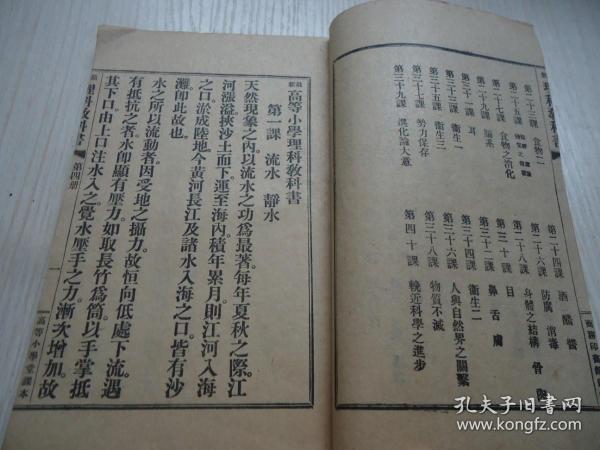 理科教科書
第二十三課 食物二
第二十五課 食物之消化
第二十九課 腦系
第三十一課 耳
第三十三課 衛生一
第三十五課 衛生三
第三十七課 勢力保存
第三十九課 進化論大意
第二十四課 酒 醋 醬
第二十六課 防腐 消毒
第二十八課 身體之結構 骨
第三十課 目
第三十二課 鼻 舌 膚
第三十四課 衛生二
第三十六課 人與自然界之關繫
第三十八課 物質不滅
第四十課 輓近科學之進步
商務印書館
最新高等小學理科教科書
第一課 流水 靜水
天然現象之內以流水之功爲最著。每年夏秋之際。江
河漲溢挾沙土而下運至海內。積年累月則江河入海
之口。淤成陸地。今黃河長江及諸水入海之口。皆有沙
灘。卽此故也。
水之所以流動者。因受地之攝力。故恒向低處下流。遇
有抵抗之者。水卽顯有壓力。如取長竹爲筒。以手掌抵
其下口。由上口注水入之。覺水壓手之力。漸次增加。故
理科教科書
第四册
一
高等小學堂課本
孔夫子旧书网
www.kongfz.com
孔夫子旧书网
www.kongfz.com